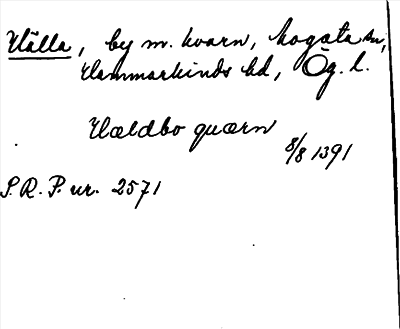 Hälla, by m. kvarn, Mogata sn,
Hammarkinds hd, Ög. l.
Hældbo quærn
8/8 1391
S.R.P. nr. 2571